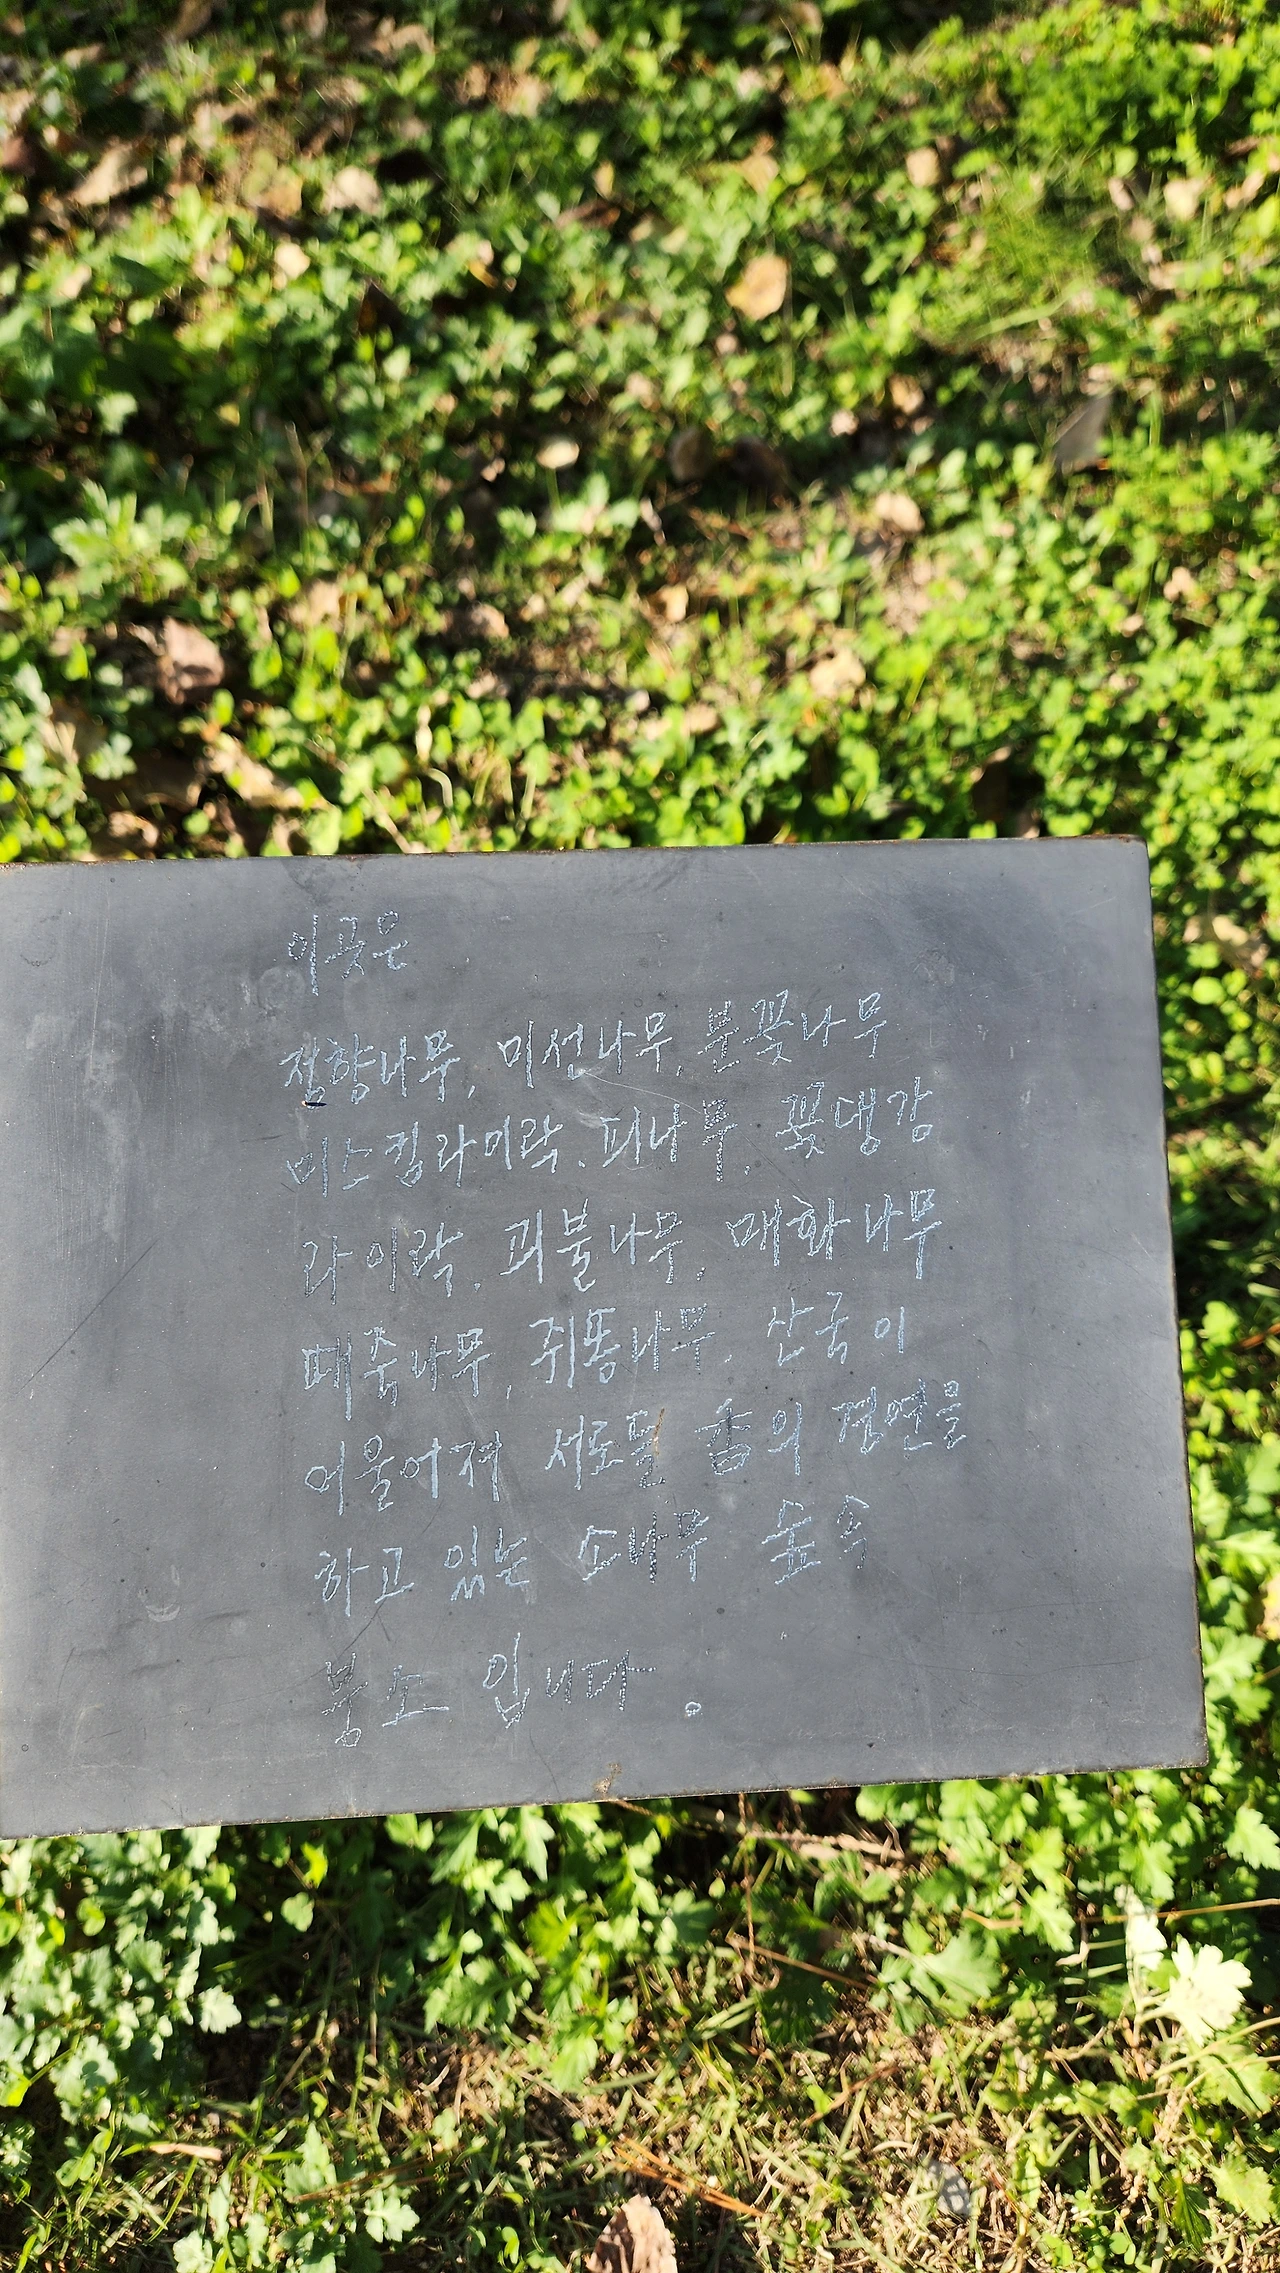 이곳은
점향나무, 미선나무, 분꽃나무
미스킴라이락, 피나무, 꽃댕강
라이락, 괴불나무, 매화나무
때죽나무, 쥐똥나무, 산국이
어울어져 서로들 香의 경연을
하고 있는 소나무 숲속
명소 입니다.